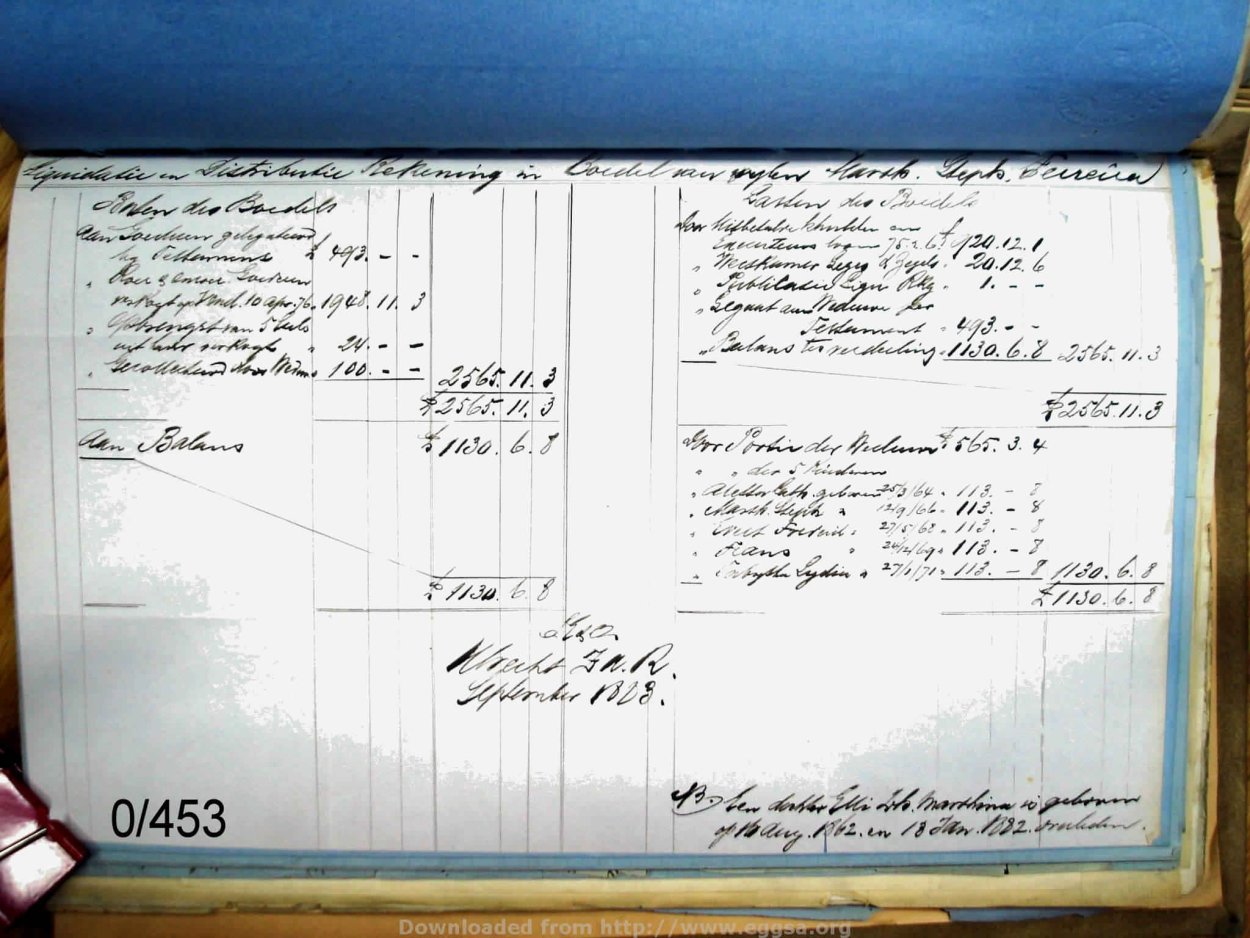 Liquidatie en Distributie Rekening in Boedel van wylen Marth. Steph. Ferreira
Baten des Boedels
Aan Goederen gelegateerd
by Testament £ 493. - -
" Roer & onroer Goederen
verkogt op Vend. 10 Apr. 76 " 1948. 11. 3
" Opbrengst van 5
uit hand verkogt " 24. - -
" Gecollecteerd door " 100. - - 2565. 11. 3
£ 2565. 11. 3
Aan Balans £ 1130. 6. 8
£ 1130. 6. 8
Lasten des Boedels
Door Uitbetaalde Schulden en
Executeurs loon 75. 2. 6 £ 920. 12. 1
" Weeskamer Legeg & Zegels " 20. 12. 6
" Publicatie Liqn Rkg " 1. - -
" Legaat aan Weduwe per
Testament " 493. - -
" Balans ter verdeeling " 1130. 6. 8 2565. 11. 3
£ 2565. 11. 3
Door Portie der Weduwe £ 565. 3. 4
" " der 5 Kinderen
" Aletta Cath. geboren 25/3/64 " 113. - 8
" Marth. Steph " 12/9/66 " 113. - 8
" Evert Frederik " 27/5/68 " 113. - 8
" Frans " 24/12/69 " 113. - 8
" Lydia " 27/1/71 " 113. - 8 1130. 6. 8
£ 1130. 6. 8
Utrecht Z. A. R.
September 1883.
NB. Een dochter Marthina is geboren
op 16 Aug. 1862. en 13 Jan. 1882. overleden.
0/453
Downloaded from http://www.eggsa.org